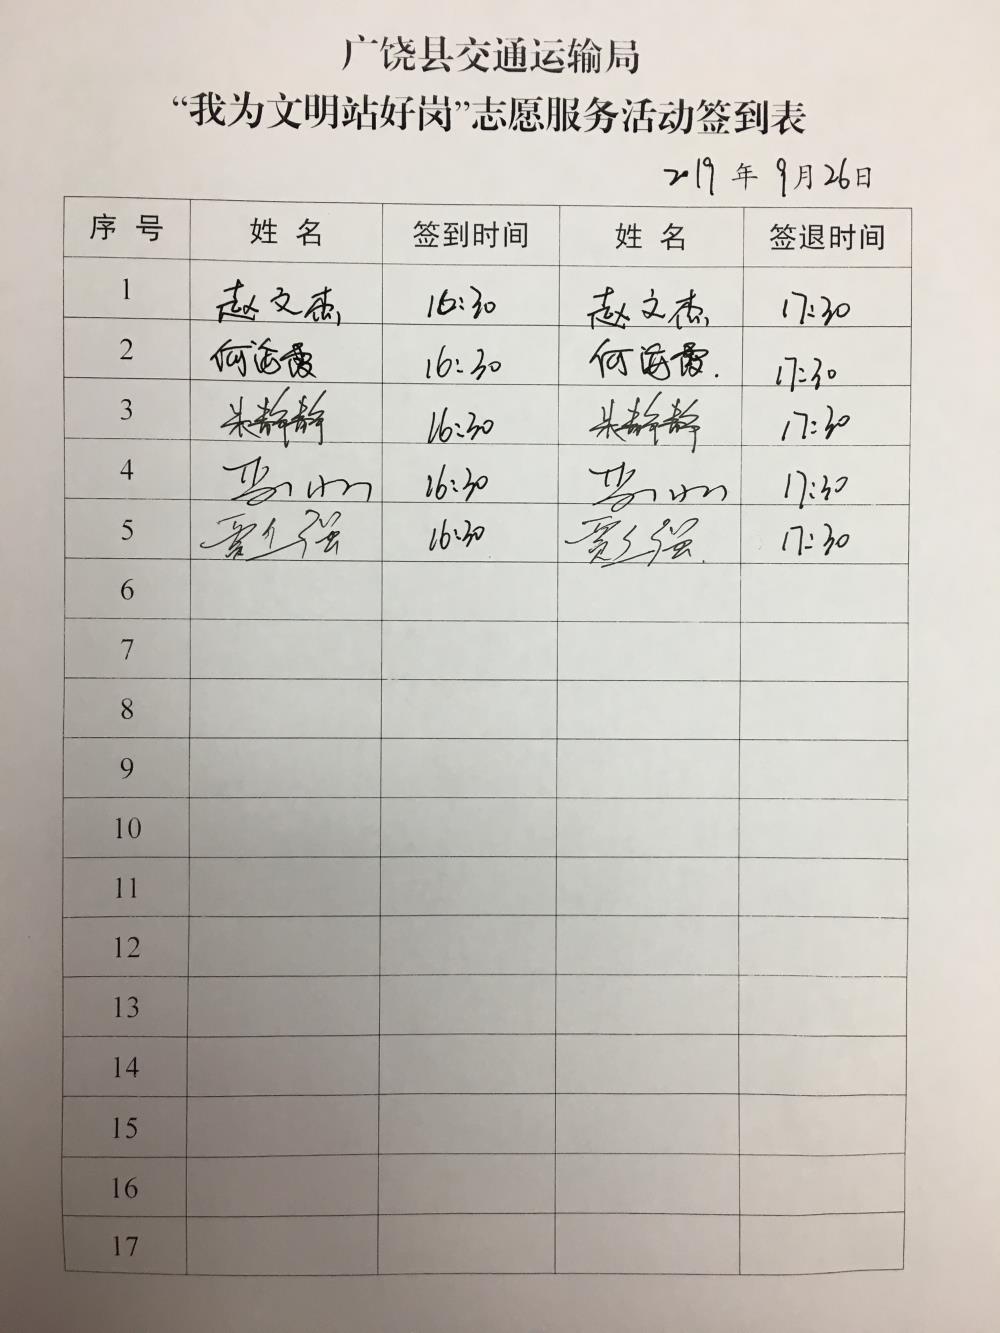 广饶县交通运输局
“我为文明站好岗”志愿服务活动签到表
2019年9月26日
序号 姓名 签到时间 姓名 签退时间
1 赵文杰 16:30 赵文杰 17:30
2 何海霞 16:30 何海霞. 17:30
3 朱静静 16:30 朱静静 17:30
4 16:30 17:30
5 16:30 17:30
6
7
8
9
10
11
12
13
14
15
16
17